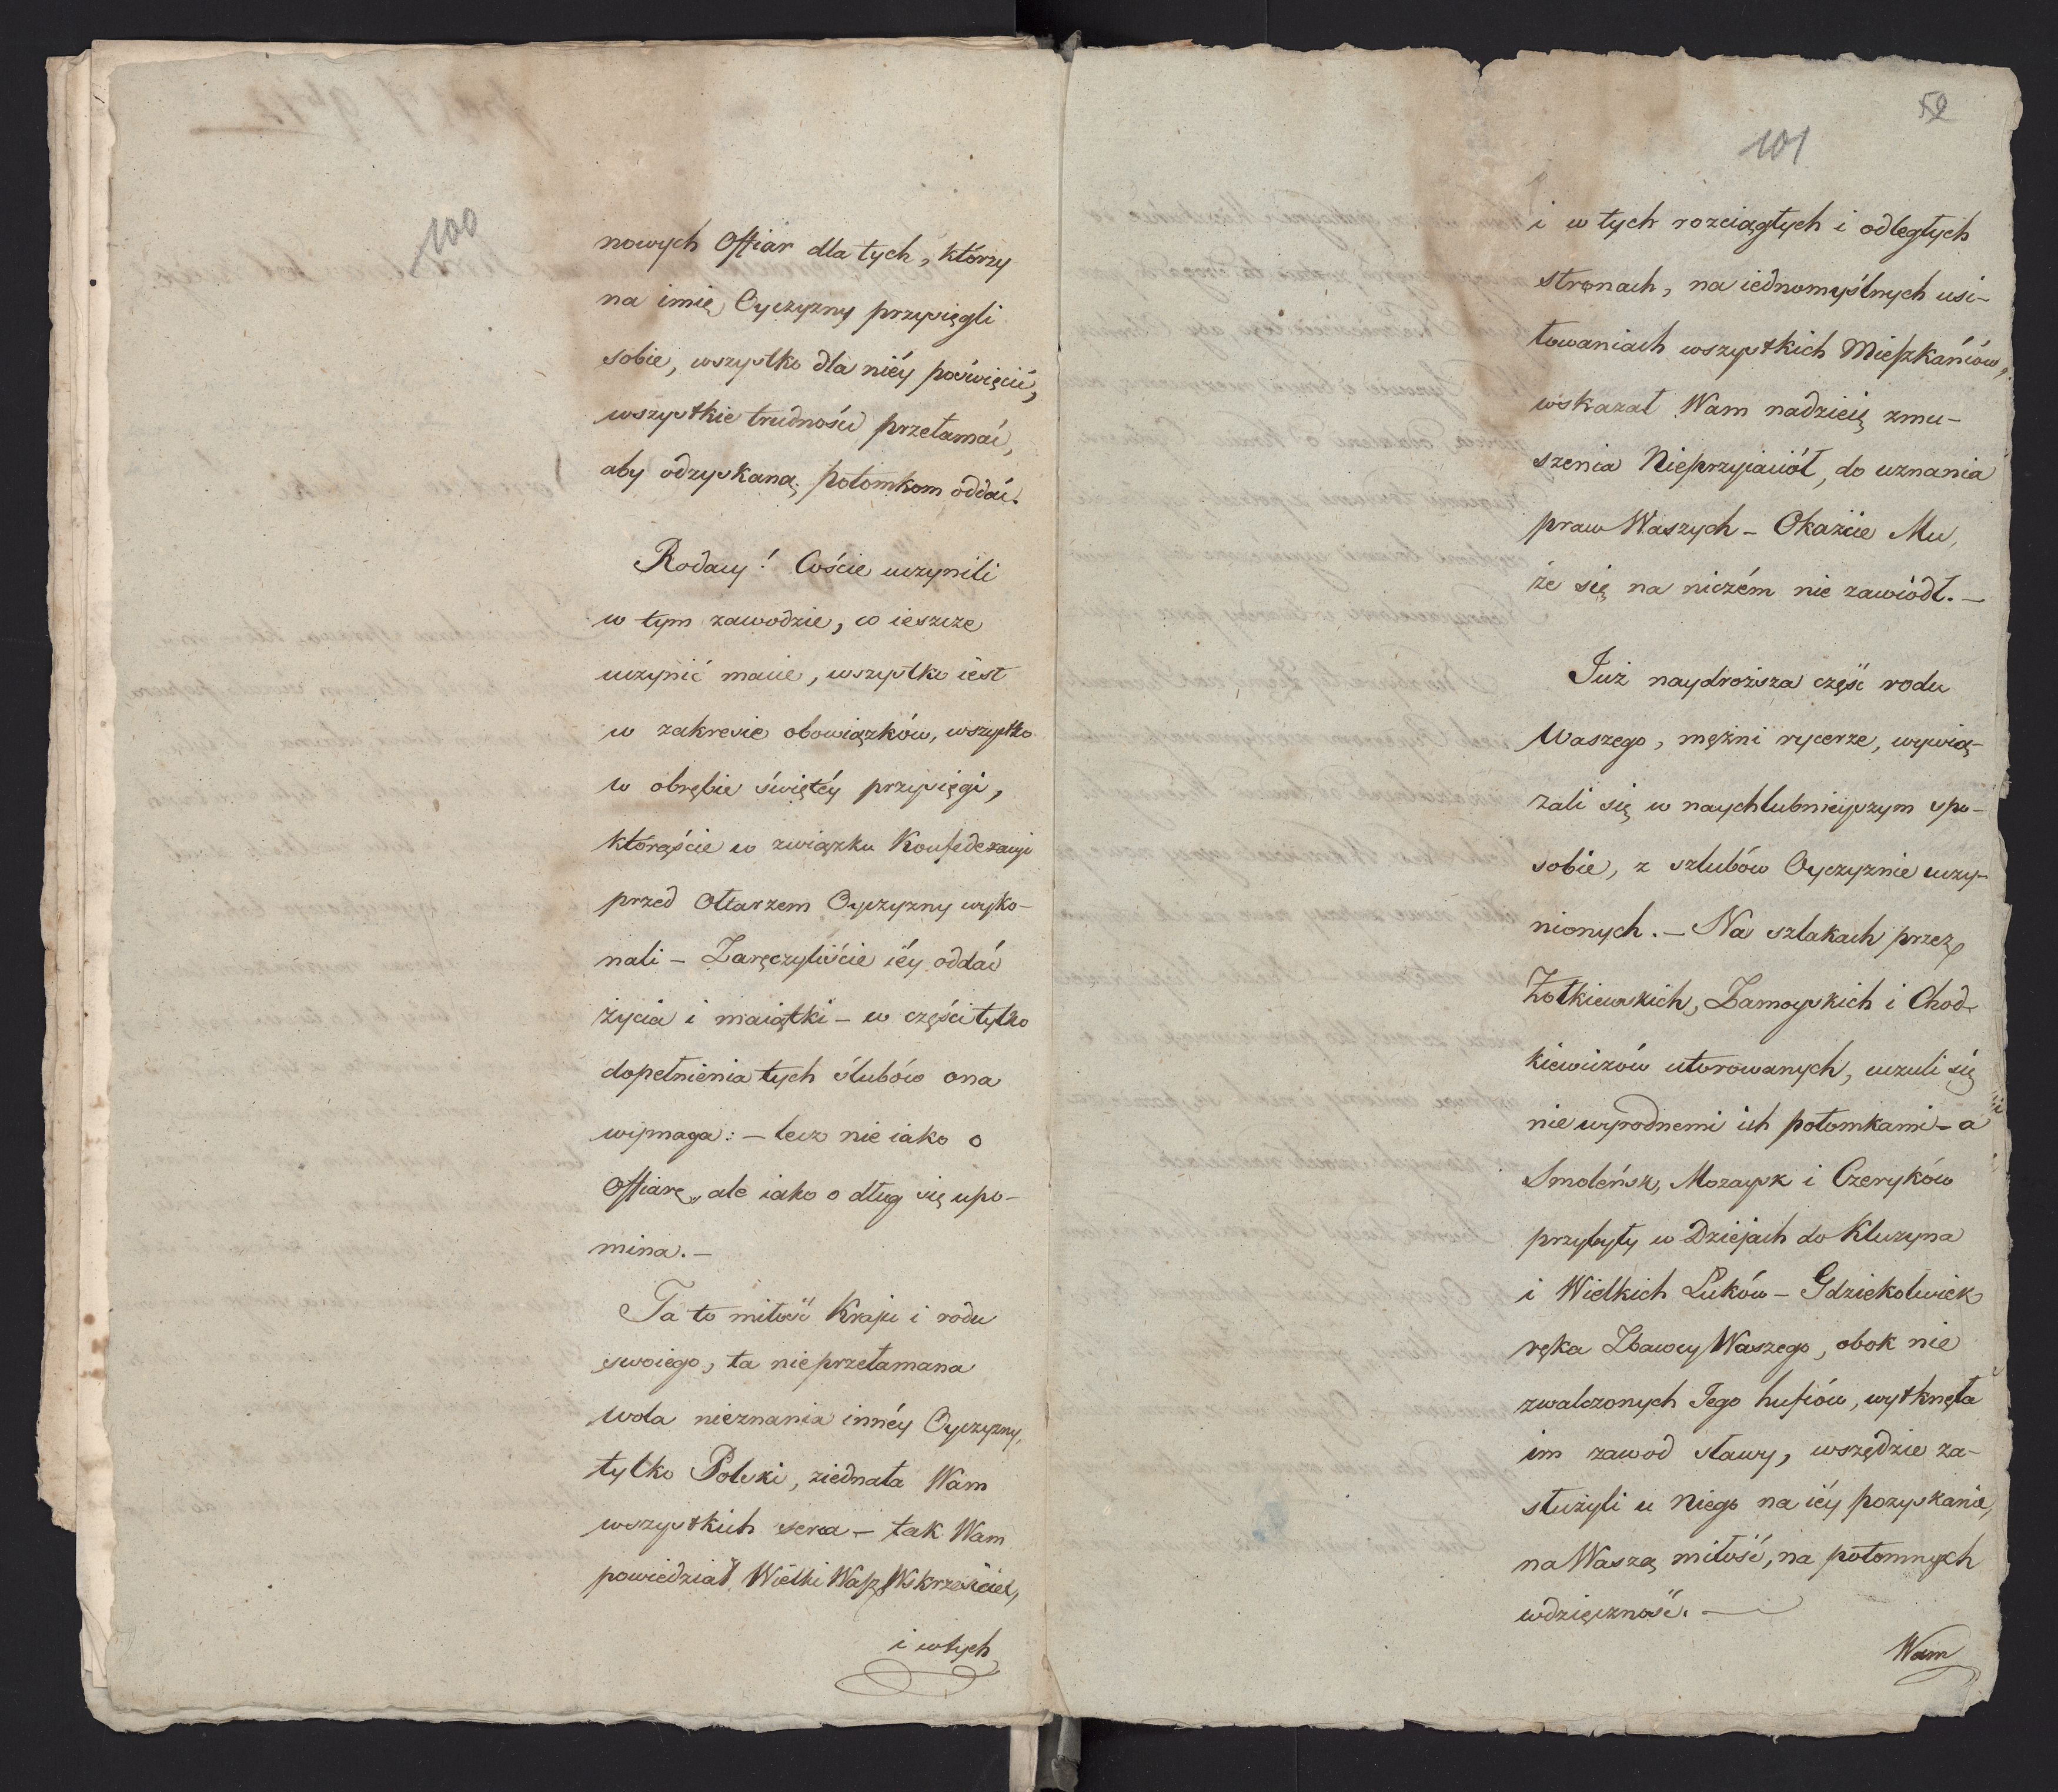 100
nowych Offiar dla tych, którzy
na imię Oyczyzny przysięgli
sobie, wszystko dla niéy poświęcić,
wszystkie trudności przełamać,
aby odzyskaną potomkom oddać.
Rodacy! Coście uczynili
w tym zawodzie, co ieszcze
uczynić macie, wszystko iest
w zakresie obowiązków, wszystko
w obrębie świętéy przysięgi,
którąście w związku Konfederacyi
przed Ołtarzem Oyczyzny wyko-
nali – Zaręczyliście iéy oddać
życia i maiątki – w części tylko
dopełnienia tych ślubów ona
wymaga: – lecz nie iako o
Offiarę, ale iako o dług się upo-
mina. –
Ta to miłość Kraju i rodu
swoiego, ta nieprzełamana
wola nieznania innéy Oyczyzny,
tylko Polski, ziednała Wam
wszystkich serca – tak Wam
powiedział Wielki Wasz Wskrzesiciel,
i w tych
52
101
i w tych rozciągłych i odległych
stronach, na iednomyślnych usi-
łowaniach wszystkich Mieszkańców,
wskazał Wam nadzieię zmu-
szenia Nieprzyiaciół, do uznania
praw Waszych – Okażcie Mu,
że się na niczém nie zawiódł. –
Już naydroższa część rodu
Waszego, mężni rycerze, wywią-
zali się w naychlubnieyszym spo-
sobie, z szlubów Oyczyznie uczy-
nionych. – Na szlakach przez
Żołkiewskich, Zamoyskich i Chod-
kiewiczów utorowanych, uczuli się
niewyrodnemi ich potomkami – a
Smoleńsk, Mozaysk i Czeryków
przybyły w Dziejach do Kluzyna
i Wielkich Łuków – Gdziekolwiek
ręka Zbawcy Waszego, obok nie
zwalczonych Jego hufców, wytknęła
im zawod sławy, wszędzie za-
służyli u Niego na iéy pozyskanie,
na Waszą miłość, na potomnych
wdzięczność. –
Wam